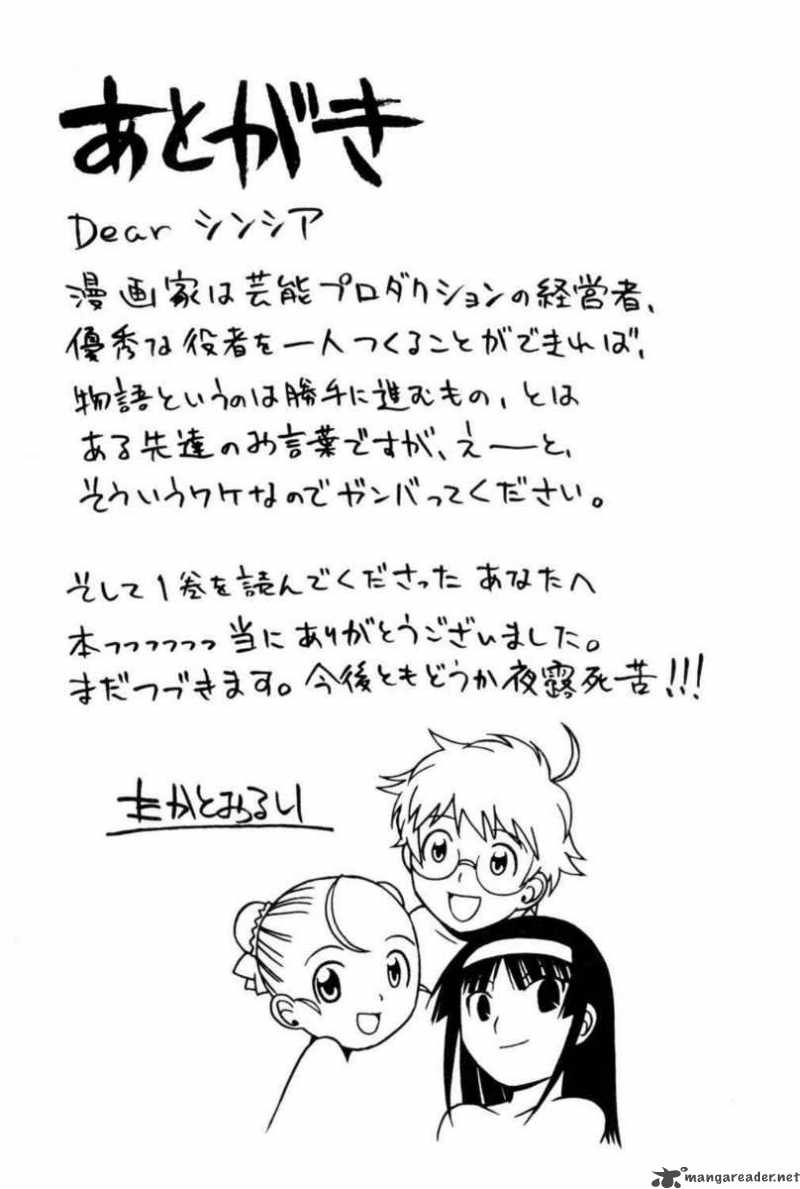 あとがき
Dear シンシア
漫画家は芸能プロダクションの経営者、
優秀な役者を一人つくることができれば、
物語というのは勝手に進むもの、とは
ある先達のお言葉ですが、えーと、
そういうワケなのでガンバってください。
そして1巻を読んでくださった あなたへ
本っっっっっっ当に ありがとうございました。
まだつづきます。今後ともどうか夜露死苦!!!
mangareader.net